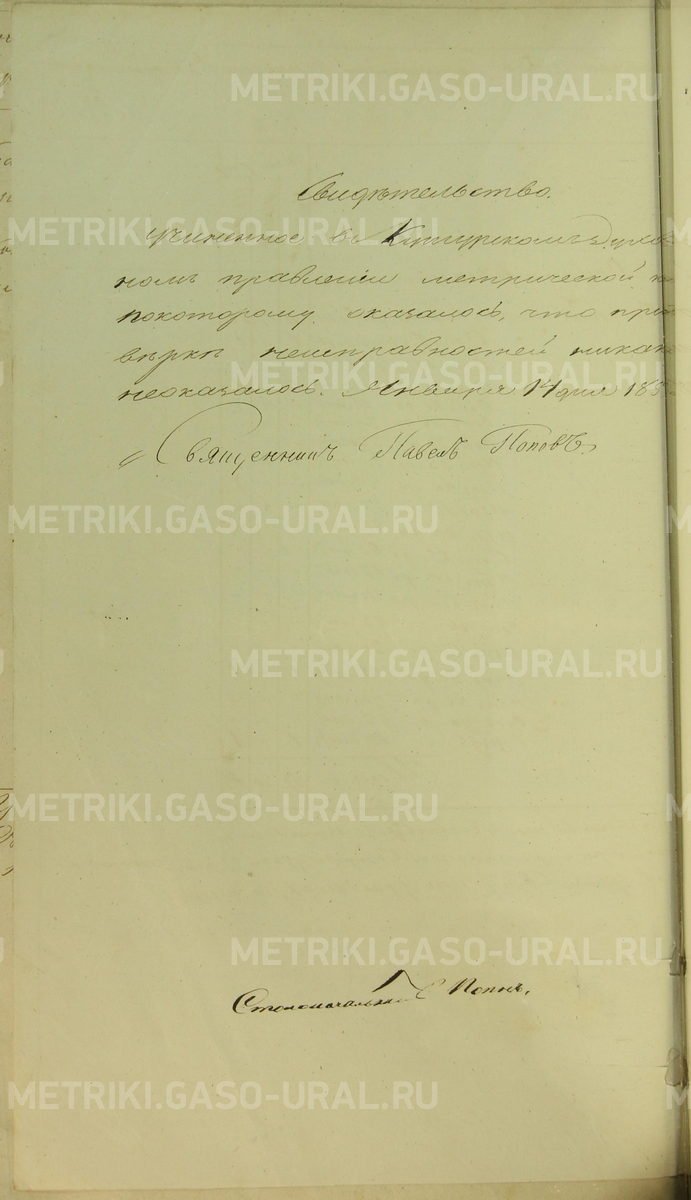 METRIKI.GASO-URAL.RU
Свидѣтельство.
Учиненное въ Кунгурскомъ Духо
номъ правленіи метрической
покоторому оказалось, что при
вѣркѣ неисправностей никак
неоказалось. Января 14 дня 185
Священникъ Павелъ Поповъ.
METRIKI.GASO-URAL.RU
METRIKI.GASO-URAL.RU
METRIKI.GASO-URAL.RU
METRIKI.GASO-URAL.RU
METRIKI.GASO-URAL.RU
METRIKI.GASO-URAL.RU
Столоначальникъ
METRIKI.GASO-URAL.RU